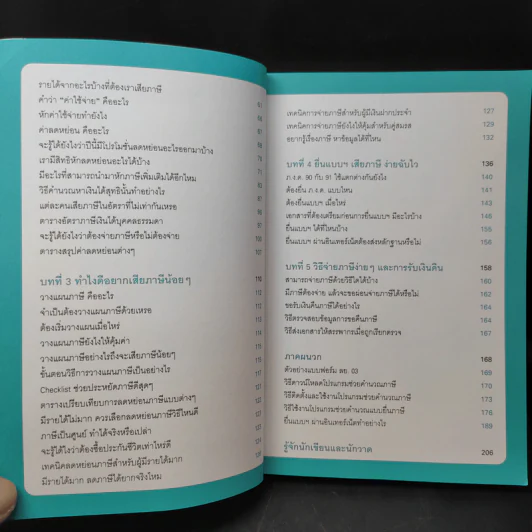 รายได้จากอะไรบ้างที่ต้องเราเสียภาษี
คำว่า "ค่าใช้จ่าย" คืออะไร
หักค่าใช้จ่ายทำยังไง
ค่าลดหย่อน คืออะไร
จะรู้ได้ยังไงว่าปีนี้มีโปรโมชั่นลดหย่อนอะไรออกมาบ้าง
เรามีสิทธิหักลดหย่อนอะไรได้บ้าง
มีอะไรที่สามารถนำมาหักภาษีเพิ่มเติมได้อีกไหม
วิธีคำนวณหาเงินได้สุทธินั้นทำอย่างไร
แต่ละคนเสียภาษีในอัตราที่ไม่เท่ากันเหรอ
ตารางอัตราภาษีเงินได้บุคคลธรรมดา
จะรู้ได้ยังไงว่าต้องจ่ายภาษีหรือไม่ต้องจ่าย
ตารางสรุปค่าลดหย่อนต่างๆ
บทที่ 3 ทำไงดีอยากเสียภาษีน้อยๆ 110
วางแผนภาษี คืออะไร
จำเป็นต้องวางแผนภาษีด้วยเหรอ
ต้องเริ่มวางแผนเมื่อไหร่
วางแผนภาษียังไงให้คุ้มค่า
วางแผนภาษีอย่างไรถึงจะเสียภาษีน้อยๆ
ขั้นตอนวิธีการวางแผนภาษีเป็นอย่างไร
Checklist ช่วยประหยัดภาษีดีสุดๆ
ตารางเปรียบเทียบการลดหย่อนภาษีแบบต่างๆ
มีรายได้ไม่มาก ควรเลือกลดหย่อนภาษีวิธีไหนดี
ภาษีเป็นศูนย์ ทำได้จริงหรือเปล่า
จะรู้ได้ไงว่าต้องซื้อประกันชีวิตเท่าไหร่ดี
เทคนิคลดหย่อนภาษีสำหรับผู้มีรายได้มาก
มีรายได้มาก ลดภาษีได้ยากจริงไหม
เทคนิคการจ่ายภาษีสำหรับผู้มีเงินฝากประจำ 127
เทคนิคการจ่ายภาษียังไงให้คุ้มสำหรับคู่สมรส 129
อยากรู้เรื่องภาษี หาข้อมูลได้ที่ไหน 132
บทที่ 4 ยื่นแบบฯ เสียภาษี ง่ายฉับไว 136
ภ.ง.ด. 90 กับ 91 ใช้แตกต่างกันยังไง 140
ต้องยื่น ภ.ง.ด. แบบไหน 141
ต้องยื่นแบบฯ เมื่อไหร่ 143
เอกสารที่ต้องเตรียมก่อนการยื่นแบบฯ มีอะไรบ้าง 145
ยื่นแบบฯ ได้ที่ไหนบ้าง 155
ยื่นแบบฯ ผ่านอินเทอร์เน็ตต้องส่งหลักฐานหรือไม่ 156
บทที่ 5 วิธีจ่ายภาษีง่ายๆ และการรับเงินคืน 158
สามารถจ่ายภาษีด้วยวิธีใดได้บ้าง 160
มีภาษีต้องจ่าย แล้วจะขอผ่อนจ่ายภาษีได้หรือไม่ 162
ขอรับเงินคืนภาษีได้อย่างไร 164
วิธีตรวจสอบข้อมูลการขอคืนภาษี 164
วิธีส่งเอกสารให้สรรพากรเมื่อถูกเรียกตรวจ 167
ภาคผนวก 168
ตัวอย่างแบบฟอร์ม ลย. 03 169
วิธีดาวน์โหลดโปรแกรมช่วยคำนวณภาษี 170
วิธีติดตั้งและใช้งานโปรแกรมช่วยคำนวณภาษี 173
วิธีใช้งานโปรแกรมช่วยคำนวณแบบยื่นภาษี 176
ยื่นแบบฯ ผ่านอินเทอร์เน็ตทำอย่างไร 189
รู้จักนักเขียนและนักวาด 206